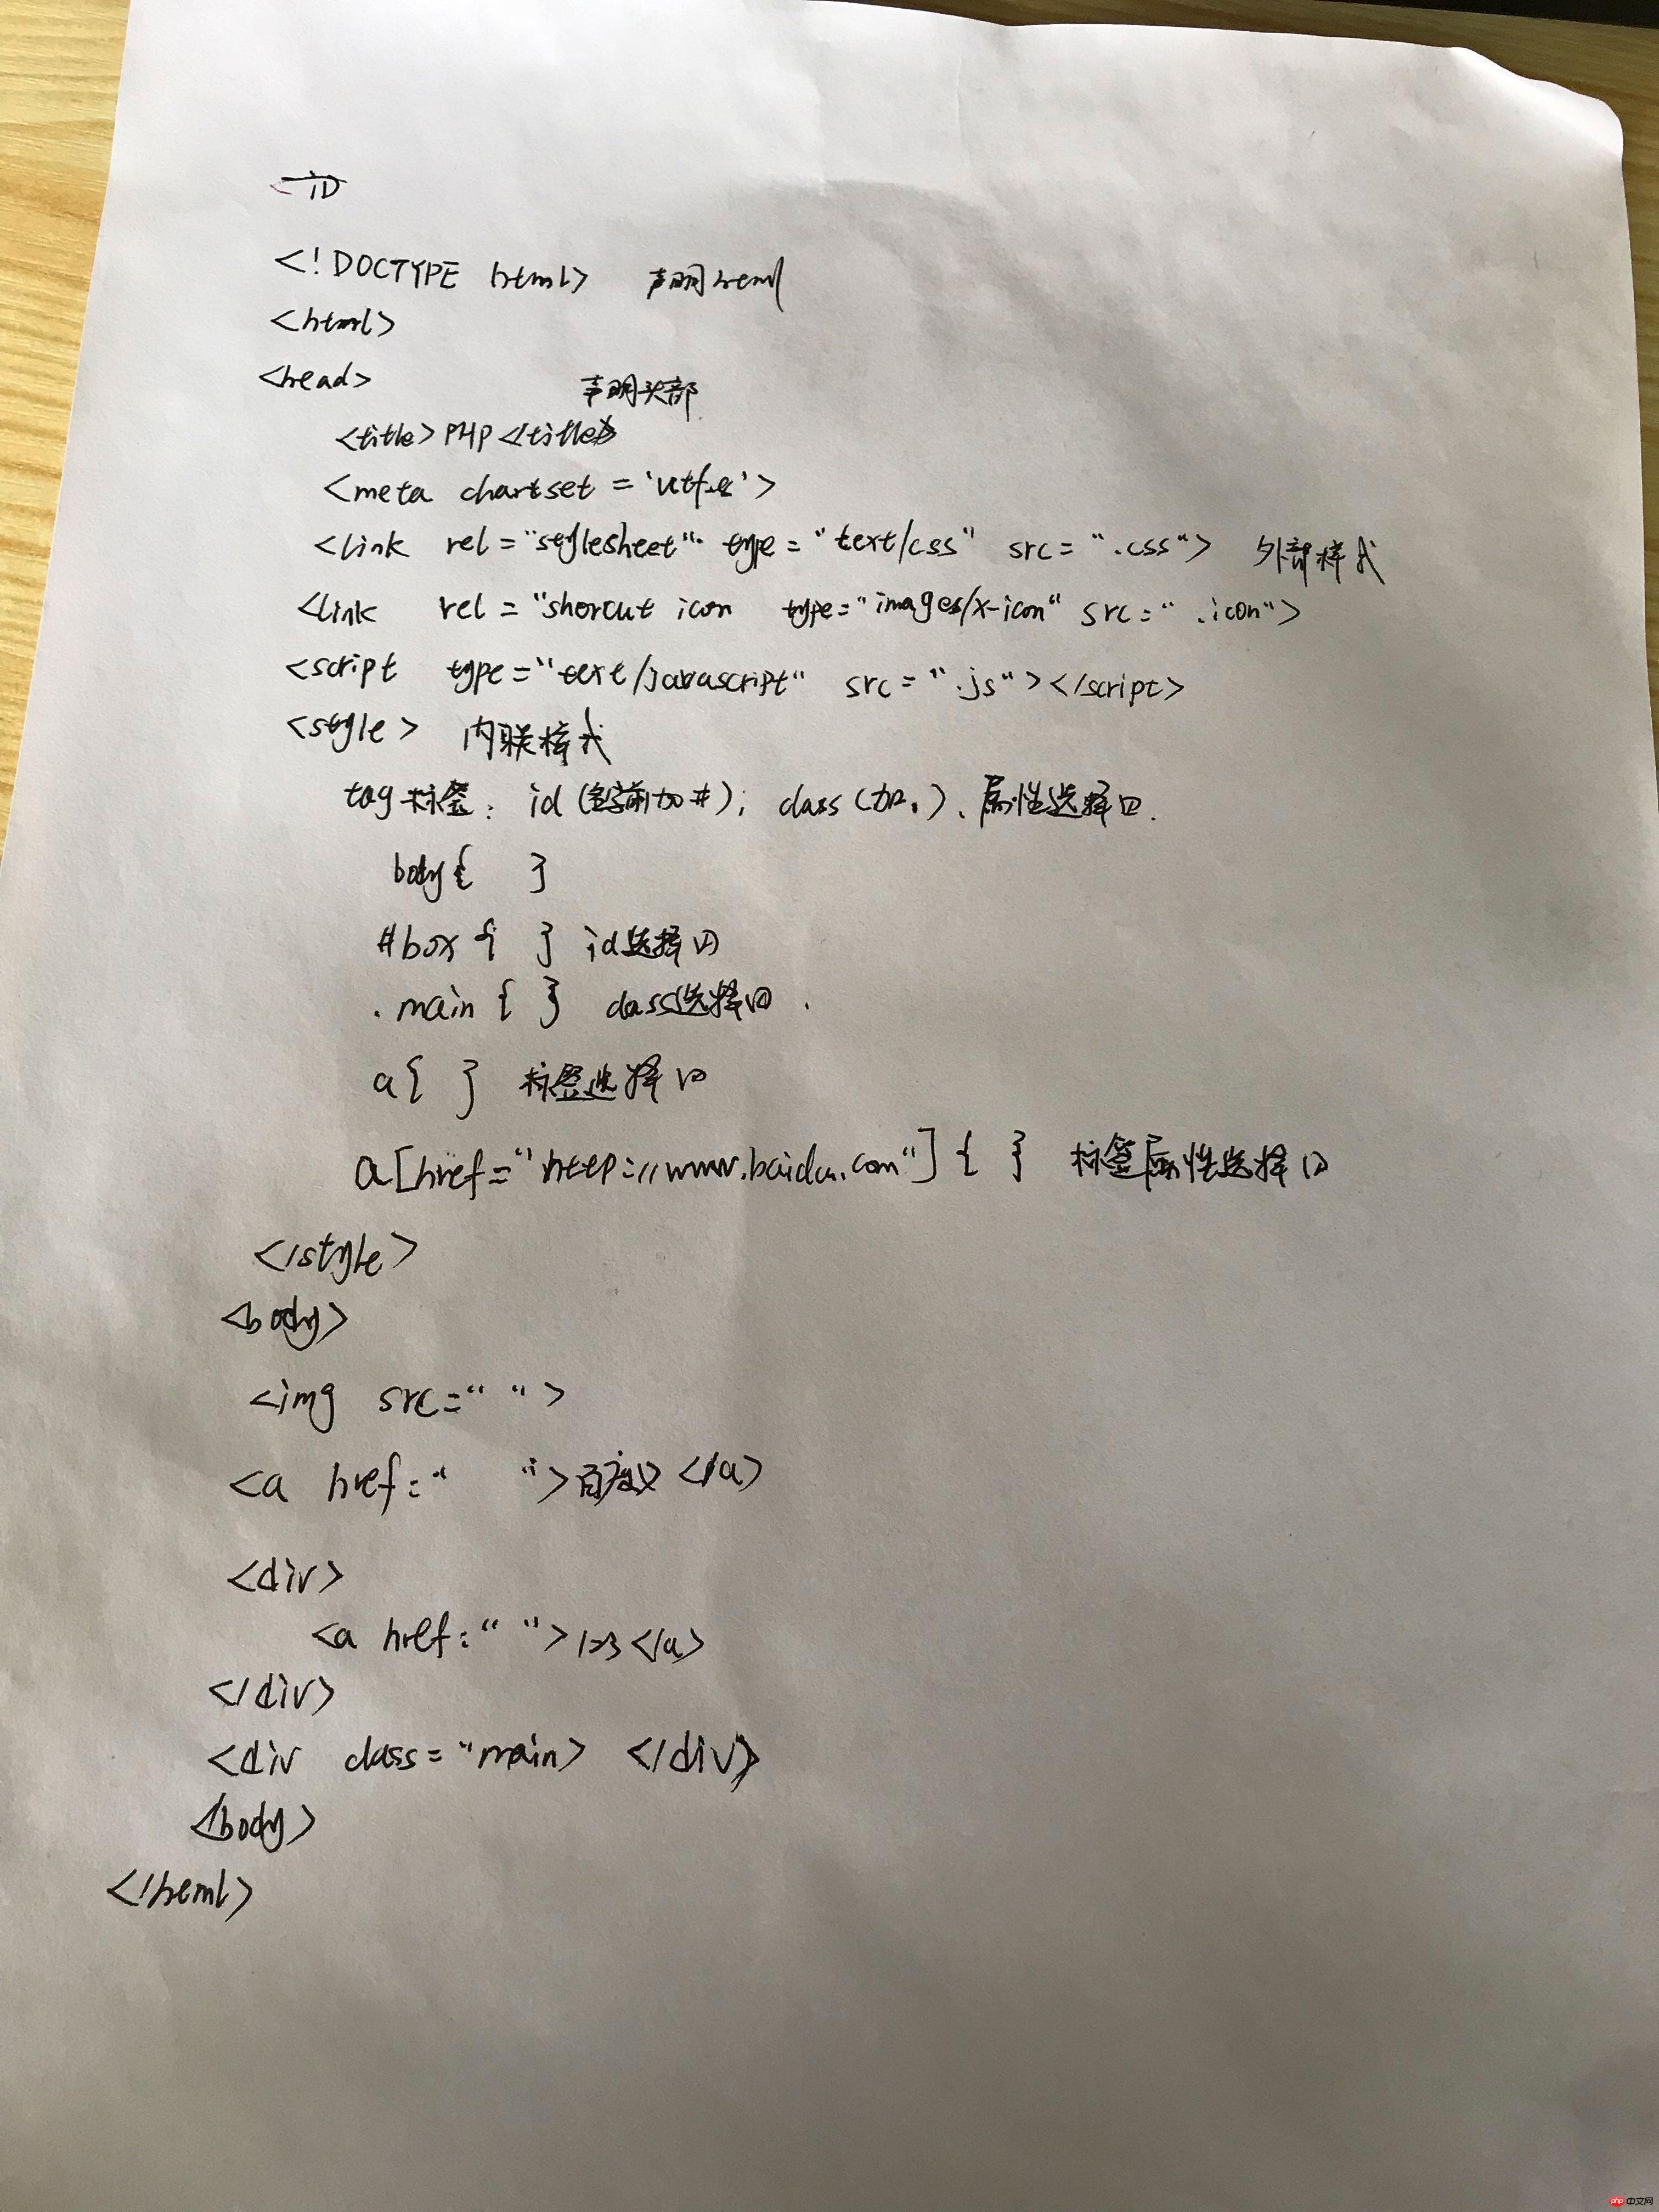 iD
<!DOCTYPE html> 声明html
<html>
<head> 声明头部
<title>PHP</title>
<meta chartset='utf-8'>
<link rel="stylesheet" type="text/css" src=".css"> 外部样式
<link rel="shorcut icon type="images/x-icon" src=" .icon">
<script type="text/javascript" src=".js"></script>
<style> 内联样式
tag标签: id(名字前加#); class(加.)、属性选择口.
body{ }
#box{ } id选择口
.main{ } class选择口.
a{ } 标签选择口
a[href="http://www.baidu.com"]{ } 标签属性选择口
</style>
<body>
<img src=" ">
<a href:" ">百度</a>
<div>
<a href:" ">123</a>
</div>
<div class="main> </div>
</body>
</html>
php 中文网